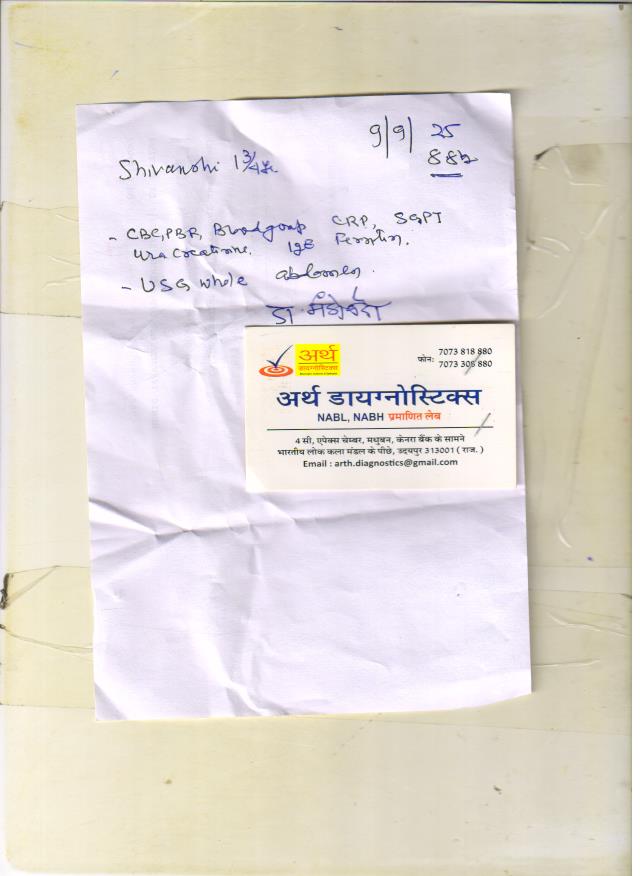 9/9/25
882
Shivanshi 1 3/4
- CBC, PBF, Bloodgoup CRP, SGPT
Urea Creatinine. IgE Ferritin.
- USG whole abdomen.
डा
अर्थ
डायग्नोस्टिक्स
फोन: 7073 818 880
7073 308 880
अर्थ डायग्नोस्टिक्स
NABL, NABH प्रमाणित लेब
4 सी, एपेक्स चेम्बर, मधुबन, केनरा बैंक के सामने
भारतीय लोक कला मंडल के पीछे, उदयपुर 313001 ( राज. )
Email : arth.diagnostics@gmail.com